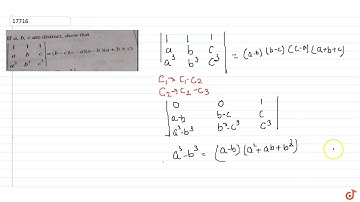 17716
If a, b, c are distinct, show that
| 1 1 1 |
| a b c | = (b − c)(c − a)(a − b)(a + b + c)
| a³ b³ c³ |
| 1 1 1 |
| a b c | = (a-b)(b-c)(c-a)(a+b+c)
| a³ b³ c³ |
C₁ → C₁-C₂
C₂ → C₂-C₃
| 0 0 1 |
| a-b b-c c |
| a³-b³ b³-c³ c³ |
a³-b³ = (a-b)(a²+ab+b²)